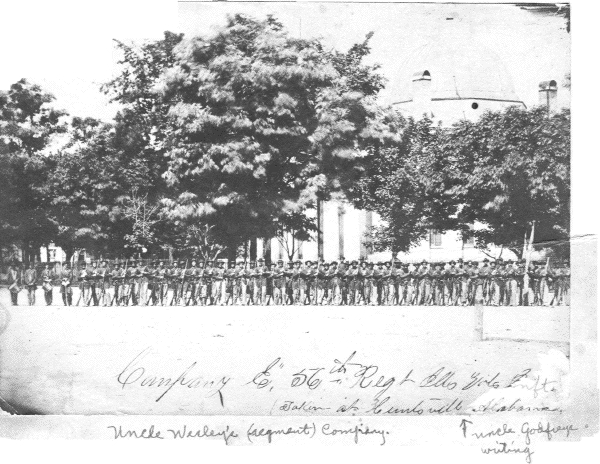 Company E, 56th Regt Ills Vols Inft.
(Taken at Huntsville, Alabama,
Uncle Wesley's (segment) Company.
↑ Uncle Godfreys
writing